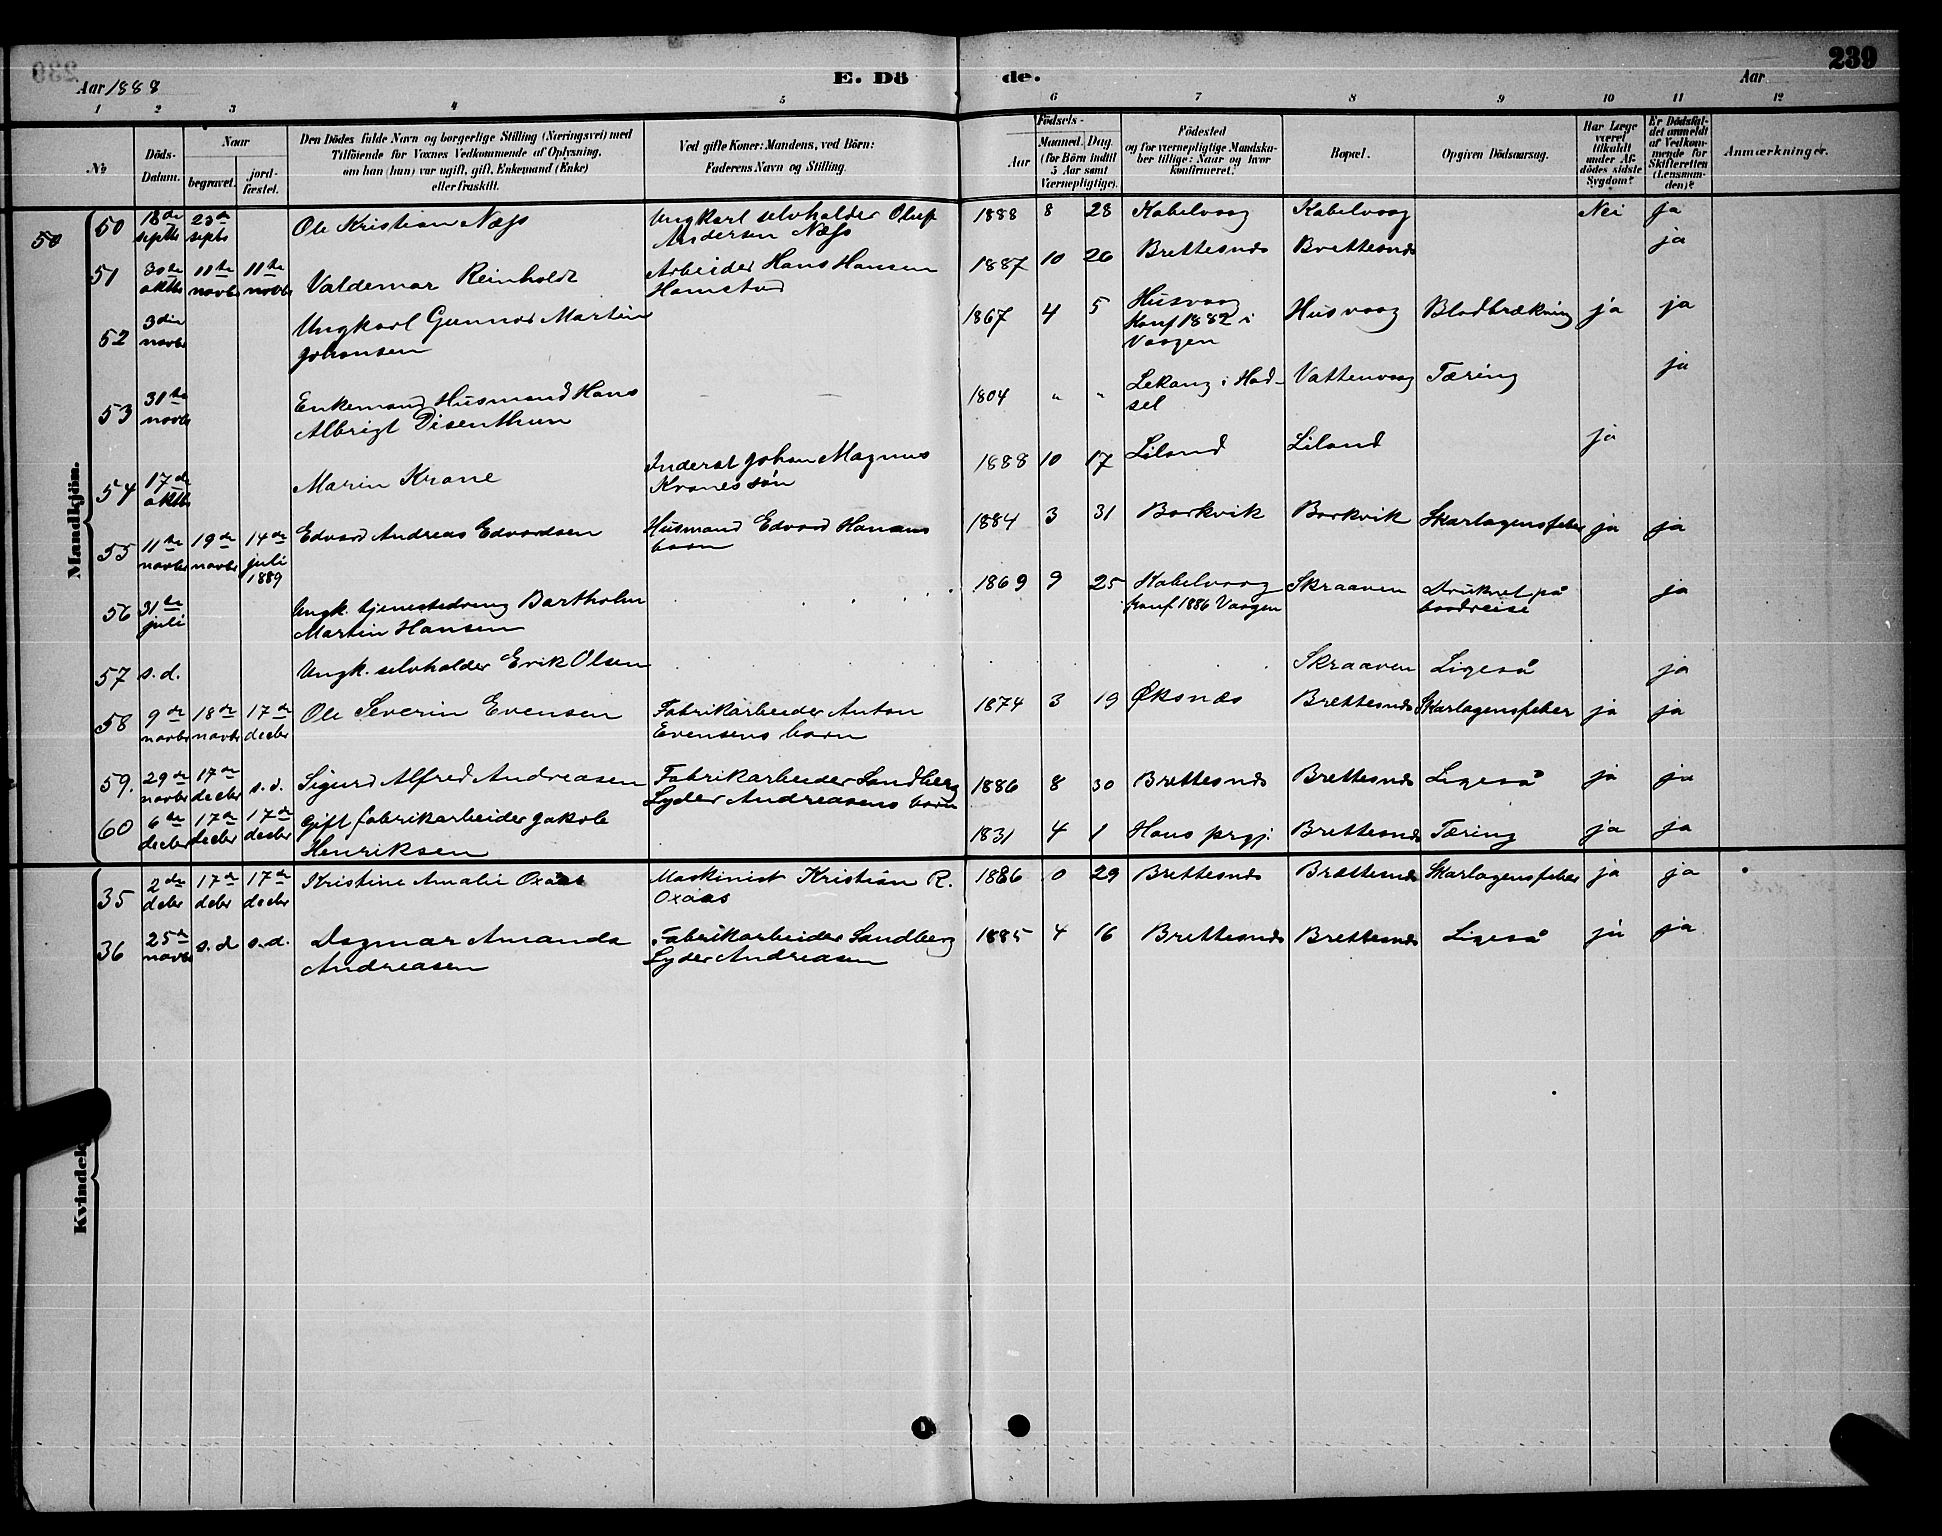 239
Aar 1888
E. Dö
de.
Aar
1 2 3 4 5 6 7 8 9 10 11 12
No
Döds-
Datum.
Naar
begravet.
jord-
fæstet.
Den Dödes fulde Navn og borgerlige Stilling (Næringsvei) med
Tilföiende for Voxnes Vedkommende af Oplysning,
om han (hun) var ugift, gift, Enkemand (Enke)
eller fraskilt.
Ved gifte Koner: Mandens, ved Börn:
Faderens Navn og Stilling.
Födsels-
Aar
Maaned.
Dag.
(for Börn indtil
5 Aar samt
Værnepligtige).
Födested
og for værnepligtige Mandska-
ber tillige: Naar og hvor
konfirmeret?
Bopæl.
Opgiven Dödsaarsag.
Har Læge
været
tilkaldt
under Af-
dödes sidste
Sygdom?
Er Dödsfal-
det anmeldt
af Vedkom-
mende for
Skifteretten
(Lensman-
den)?
Anmærkninger.
Mandkjön.
50
50 18de septbr 23de septbr Ole Kristian Næss Ungkarl selvholder Oluf
Andersen Næss 1888 8 28 Kabelvaag Kabelvaag Nei ja
51 30te oktbr 11te novbr 11te novbr Valdemar Reinholdt Arbeider Hans Hansen
Hamstad 1887 10 26 Brettesnæs Brettesnæs ja
52 3die novbr Ungkarl Gunnar Martin
Johansen 1867 4 5 Husvaag
Konf 1882 i
Vaagen Husvaag Blodbrækning ja ja
53 31te novbr Enkemand Husmand Hans
Albrigt Disenthun 1804 " " Lekang i Had-
sel Vattenvaag Tæring ja
54 17de oktbr Marin Krane Inderst Johan Magnus
Kranes søn 1888 10 17 Liland Liland ja
55 11te novbr 19de novbr 14de juli 1889 Edvard Andreas Edvardsen Husmand Edvard Hansens
barn 1884 3 31 Barkvik Barkvik Skarlagensfeber ja ja
56 31te juli Ungk. tjenestedreng Bartholm
Martin Hansen 1869 9 25 Kabelvaag
konf 1886 Vaagen Skraaven Druknet på
baadreise ja
57 s.d. Ungk. selvholder Erik Olsen Skraaven Ligeså ja
58 9de novbr 18de novbr 17de decbr Ole Severin Evensen Fabrikarbeider Anton
Evensens barn 1874 3 19 Øksnæs Brettesnæs Skarlagensfeber ja ja
59. 29de novbr 17de decbr s.d. Sigurd Alfred Andreasen Fabrikarbeider Sandberg
Lyder Andreasens barn 1886 8 30 Brettesnæs Brettesnæs Ligeså ja ja
60 6te decbr 17de decbr 17de decbr Gift fabrikarbeider Jakob
Henriksen 1831 4 1 Haus prgj. Brettesnæs Tæring ja ja
Kvindek
35 2de decbr 17de decbr 17de decbr Kristine Amalie Oxaas Maskinist Kristian R.
Oxaas 1886 0 29 Brettesnæs Brettesnæs Skarlagensfeber ja ja
36 25de novbr s.d s.d. Dagmar Amanda
Andreasen Fabrikarbeider Sandberg
Lyder Andreasen 1885 4 16 Brettesnæs Brettesnæs Ligeså ja ja